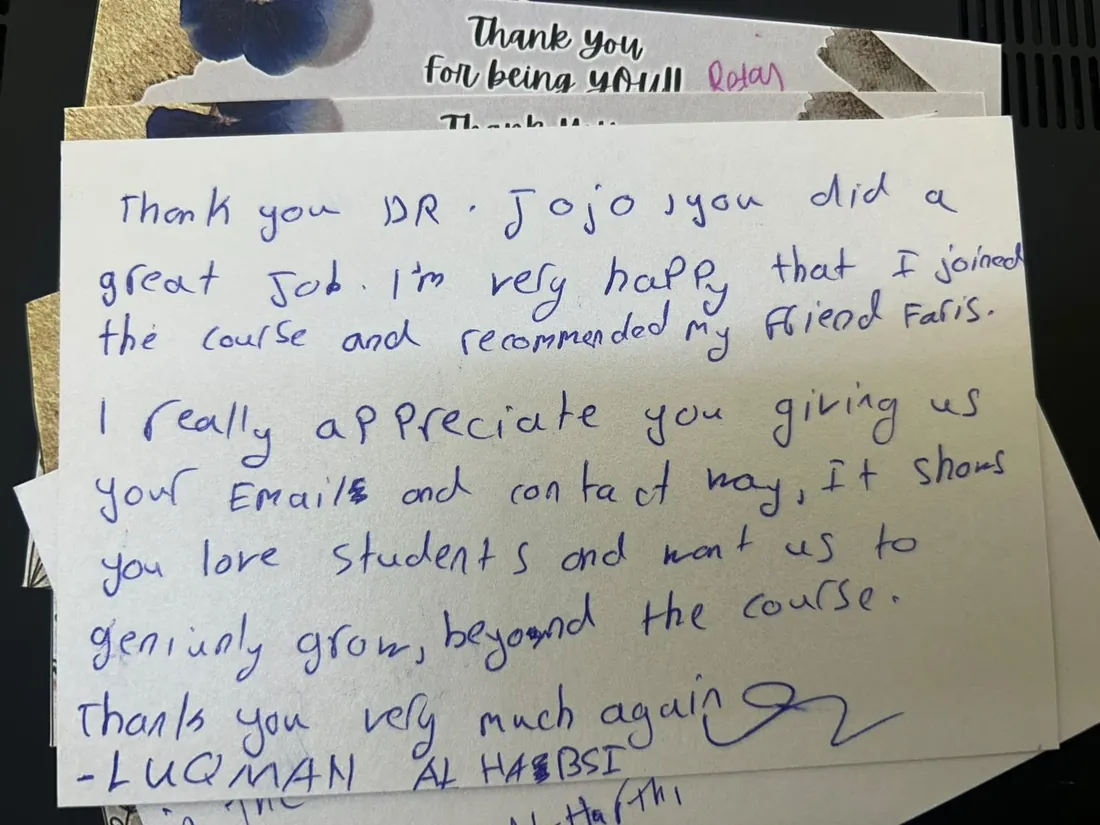 Thank you
for being you!! Rotary
Thank you
Thank you DR. Jojo, you did a
great Job. I'm very happy that I joined
the course and recommended my Friend Faris.
I really appreciate you giving us
your Emails and contact way, It shows
you love students and want us to
geniunly grow, beyond the course.
Thank you very much again
-LUQMAN AL HABSI